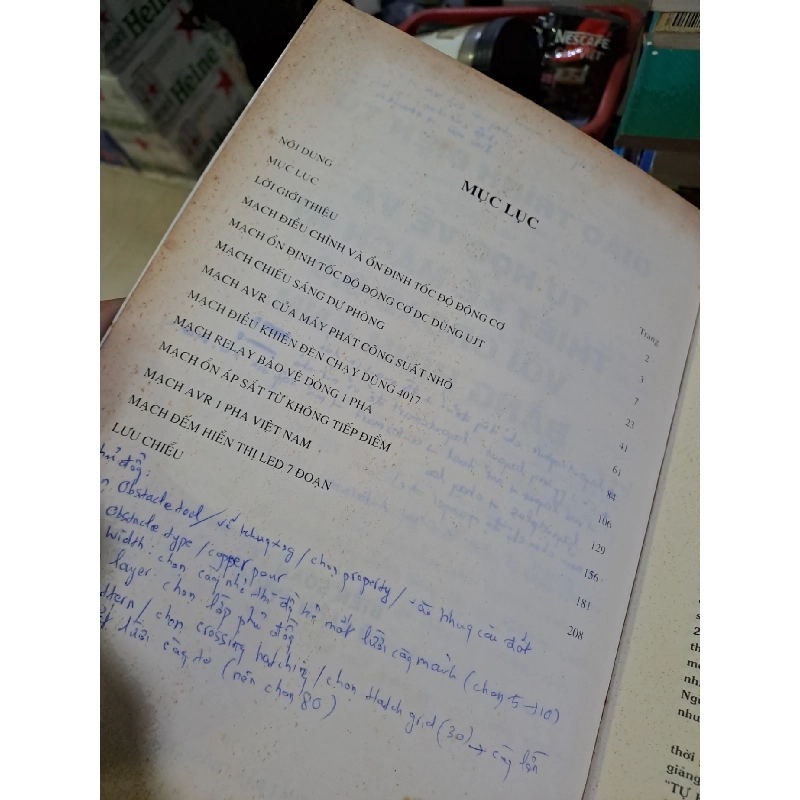 MỤC LỤC
NỘI DUNG
Trang
MỤC LỤC
2
LỜI GIỚI THIỆU
3
MẠCH ĐIỀU CHỈNH VÀ ỔN ĐỊNH TỐC ĐỘ ĐỘNG CƠ
7
MẠCH ỔN ĐỊNH TỐC ĐỘ ĐỘNG CƠ DC DÙNG UJT
23
MẠCH CHIẾU SÁNG DỰ PHÒNG
41
MẠCH AVR CỦA MÁY PHÁT CÔNG SUẤT NHỎ
61
MẠCH ĐIỀU KHIỂN ĐÈN CHẠY DÙNG 4017
84
MẠCH RELAY BẢO VỆ DÒNG 1 PHA
106
MẠCH ỔN ÁP SẮT TỪ KHÔNG TIẾP ĐIỂM
129
MẠCH AVR 1 PHA VIỆT NAM
156
MẠCH ĐẾM HIỂN THỊ LED 7 ĐOẠN
181
LƯU CHIỂU
208
phủ đồng:
Obstacle tool / vẽ khung / chọn property /
Obstacle type / copper pour
width: chọn càng nhỏ thì độ mắt lưới càng mảnh (chọn 5 → 10)
layer: chọn lớp phủ đồng
/ chọn crossing hatching / chọn Hatch grid (30) → càng lớn
lưới càng to (nên chọn 80)
NESCAFÉ
VIỆT
Heine
thời
giảng
"TỰ